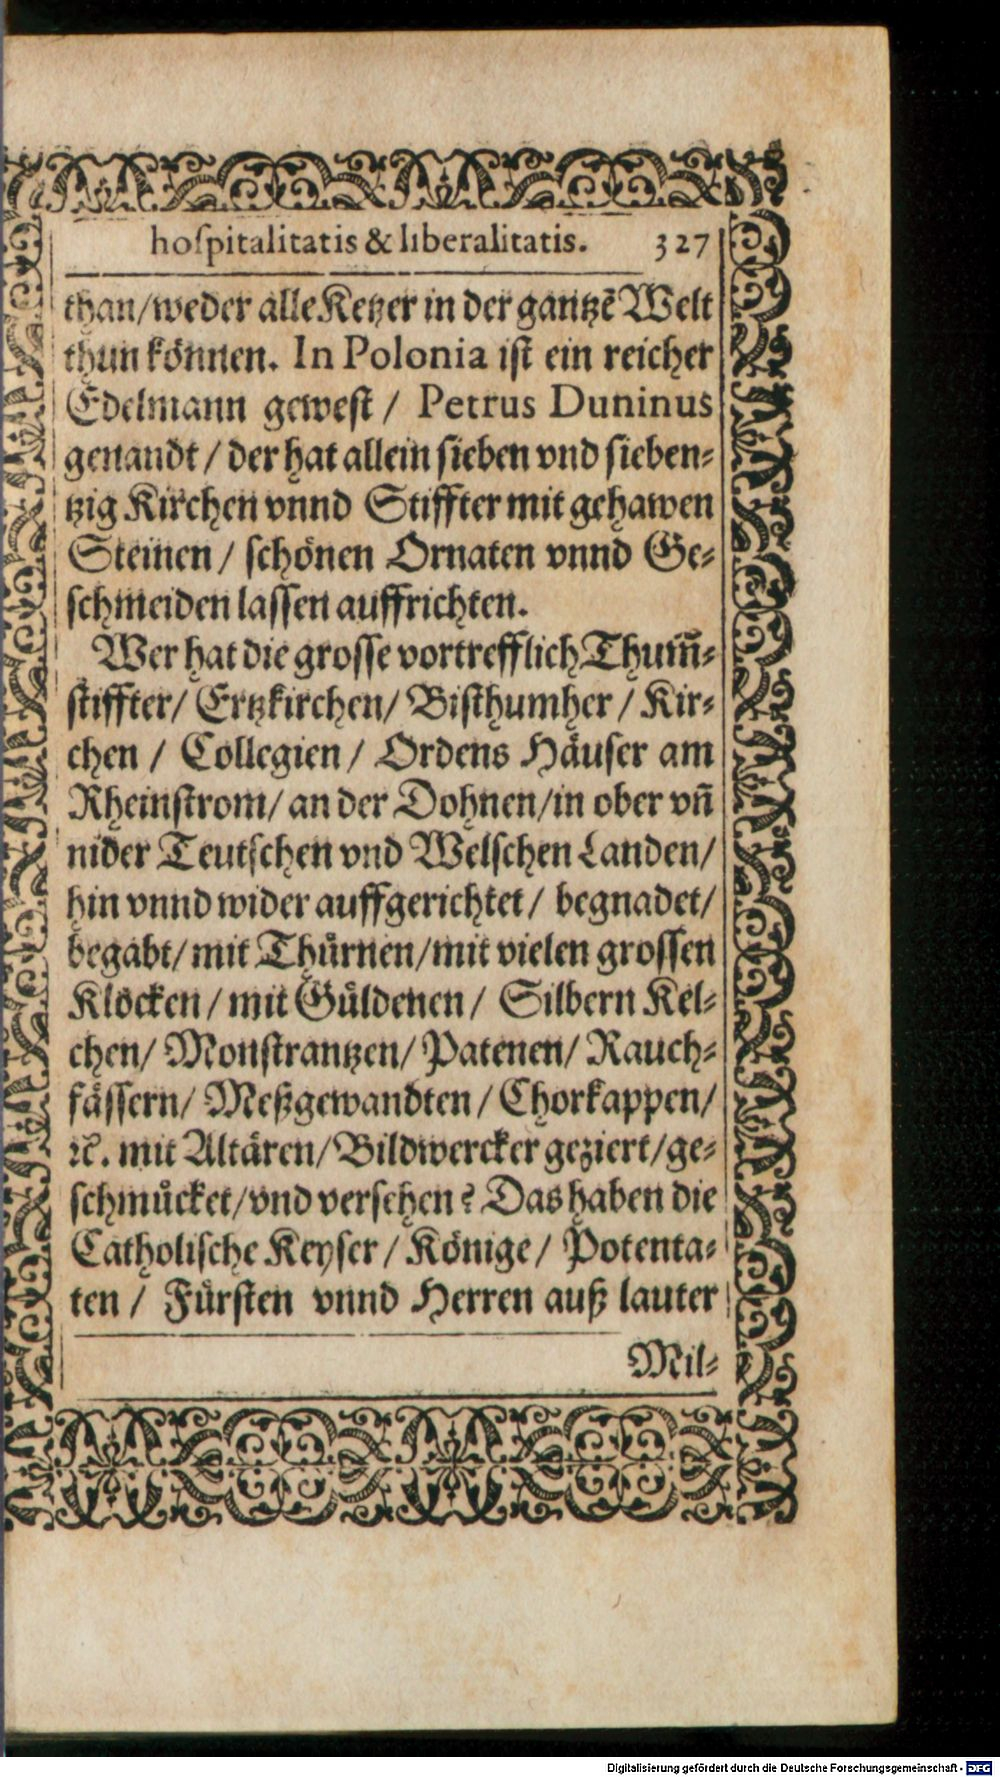 hoſpitalitatis & liberalitatis. 327
than/weder alle Ketzer in der gantzẽ Welt
thun können. In Polonia iſt ein reicher
Edelmann geweſt / Petrus Duninus
genandt / der hat allein ſieben vnd ſieben⸗
tzig Kirchen vnnd Stiffter mit gehawen
Steinen / ſchönen Ornaten vnnd Ge⸗
ſchmeiden laſſen auffrichten.
Wer hat die groſſe vortrefflich Thum̃⸗
ſtiffter/ Ertzkirchen/ Biſthumher / Kir⸗
chen / Collegien / Ordens Häuſer am
Rheinſtrom/ an der Dohnen/in ober vñ
nider Teutſchen vnd Welſchen Landen/
hin vnnd wider auffgerichtet/ begnadet/
begabt/ mit Thuͤrnen/mit vielen groſſen
Klöcken/ mit Guͤldenen/ Silbern Kel⸗
chen/ Monſtrantzen/ Patenen/ Rauch⸗
fäſſern/ Meßgewandten / Chorkappen/
ꝛc̃. mit Altären/Bildwercker geziert/ge⸗
ſchmuͤcket/vnd verſehen? Das haben die
Catholiſche Keyſer / Könige/ Potenta⸗
ten / Fuͤrſten vnnd Herren auß lauter
Mil⸗
Digitalisierung gefördert durch die Deutsche Forschungsgemeinschaft - DFG